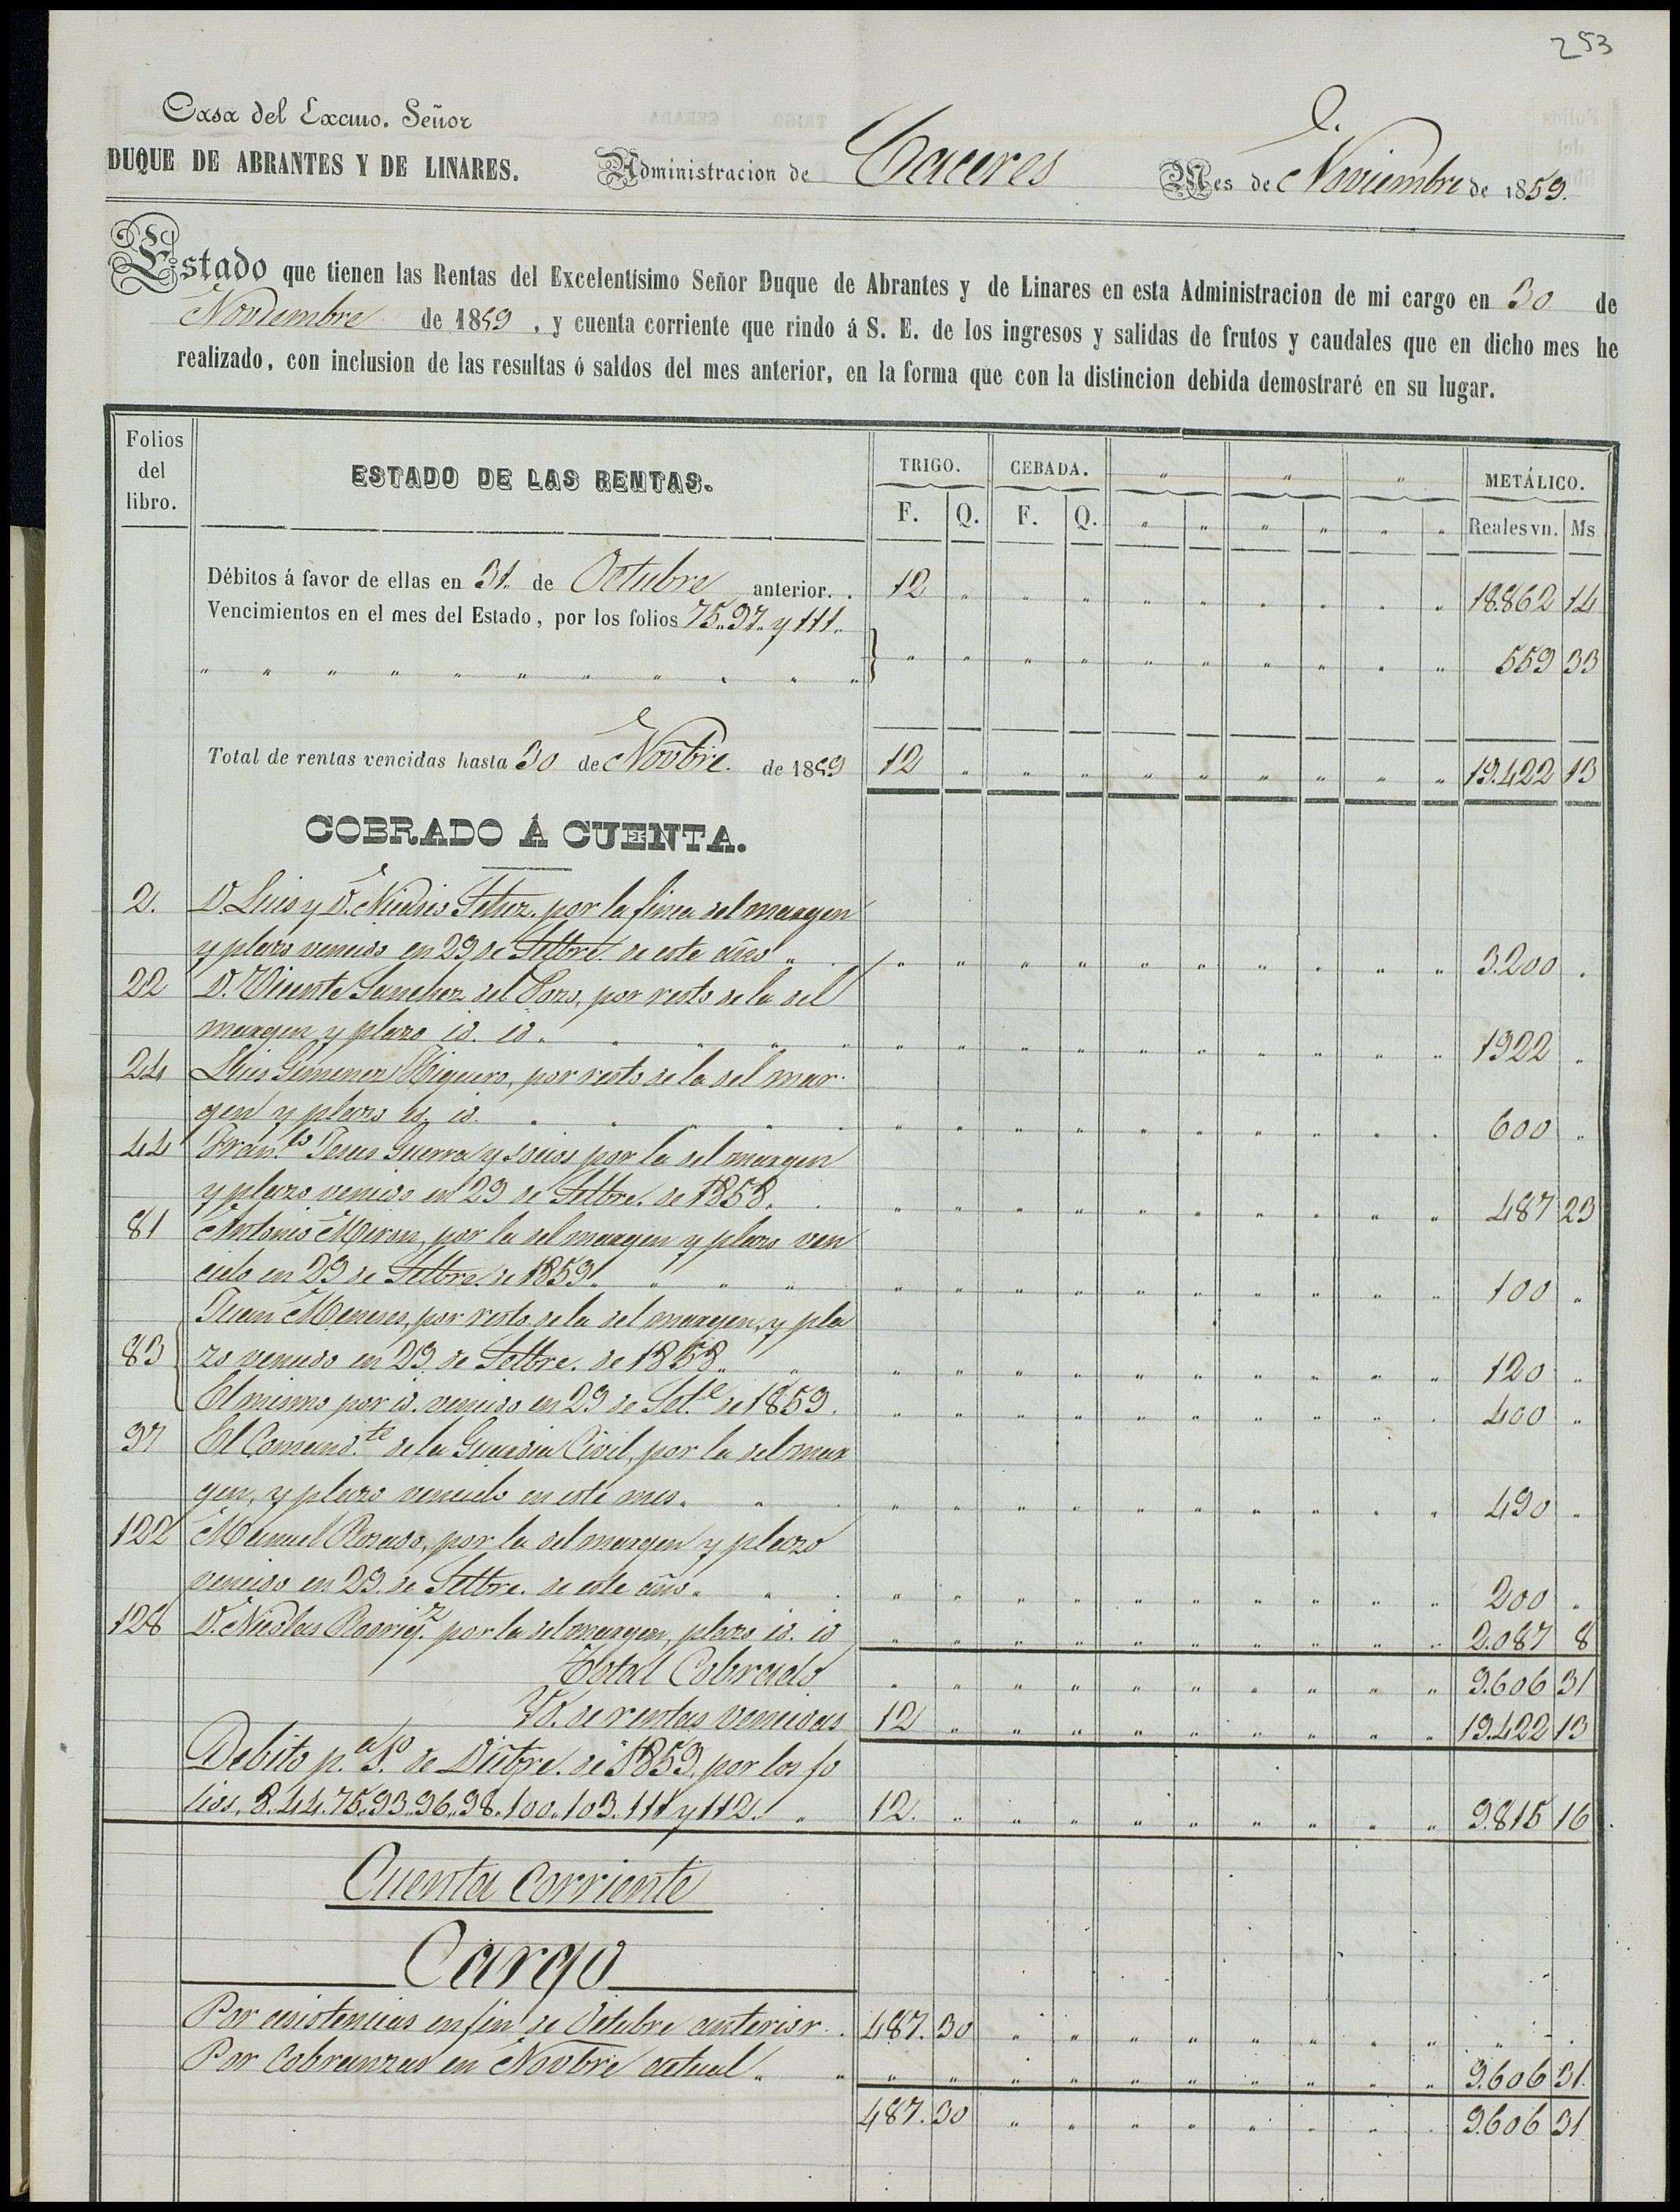 253
Casa del Excmo. Señor
DUQUE DE ABRANTES Y DE LINARES.
Administracion de Caceres
Mes de Noviembre de 1859.
Estado que tienen las Rentas del Excelentísimo Señor Duque de Abrantes y de Linares en esta Administracion de mi cargo en 30 de
Noviembre de 1859, y cuenta corriente que rindo á S. E. de los ingresos y salidas de frutos y caudales que en dicho mes he
realizado, con inclusion de las resultas ó saldos del mes anterior, en la forma que con la distincion debida demostraré en su lugar.
Folios del libro. ESTADO DE LAS RENTAS. TRIGO. CEBADA. " " " METÁLICO.
F. Q. F. Q. " " " " " " Reales vn. Ms
Débitos á favor de ellas en 31. de Octubre anterior. . 12 " " " " " " " " " 18.862 14
Vencimientos en el mes del Estado, por los folios 75..97.. y 111..
" " " " " " " " " " " " " " " " " " " " " 559 33
Total de rentas vencidas hasta 30 de Novbre. de 1859 12 " " " " " " " " " 19.422 13
COBRADO Á CUENTA.
2. D. Luis y D. por la finca del margen
y plazo vencido en 29 de Settbre. de este año " " " " " " " " " " " 3.200 "
22 D. Vicente Sanchez del Pozo, por resto de la del
margen y plazo id. id. " " " " " " " " " " 1922 "
24 Luis Gimenez Higuero, por resto de la del mar-
gen y plazo id. id. " " " " " " " " " " 600 "
44 Fran.co Jesus Guerra y socios por la del margen
y plazo vencido en 29 de Settbre. de 1858. " " " " " " " " " " 487 23
81 Antonio Miron, por la del margen y plazo ven
cido en 29 de Settbre. de 1859. " " " " " " " " " " 100 "
Juan Meneses, por resto de la del margen, y pla
83 zo vencido en 29 de Settbre. de 1858. " " " " " " " " " " 120 "
El mismo por id. vencido en 29 de Set.e de 1859. " " " " " " " " " " 400 "
97 El Comand.te de la Guardia Civil, por la del mar
gen, y plazo vencido en este mes. " " " " " " " " " " 490 "
122 Manuel Rosado, por la del margen y plazo
vencido en 29. de Settbre. de este año. " " " " " " " " " " 200 "
128 D. Nicolas Rodrig.z por la del margen, plazo id. id " " " " " " " " " " 2.087 8
Total Cobrado " " " " " " " " " " 9.606 31
Yd. de rentas vencidas 12 " " " " " " " " " 19.422 13
Debito p.a 1.o de Dicbre. de 1859, por los fo
lios, 8..44..75..93..96..98..100..103..111 y 112. " 12. " " " " " " " " " 9.815 16
Cuenta Corriente
Cargo
Por existencias en fin de Octubre anterior. . 487. 30 " " " " " " " " " "
Por Cobranzas en Novbre actual. " " " " " " " " " " " 9.606 31.
487. 30 " " " " " " " " 9.606 31